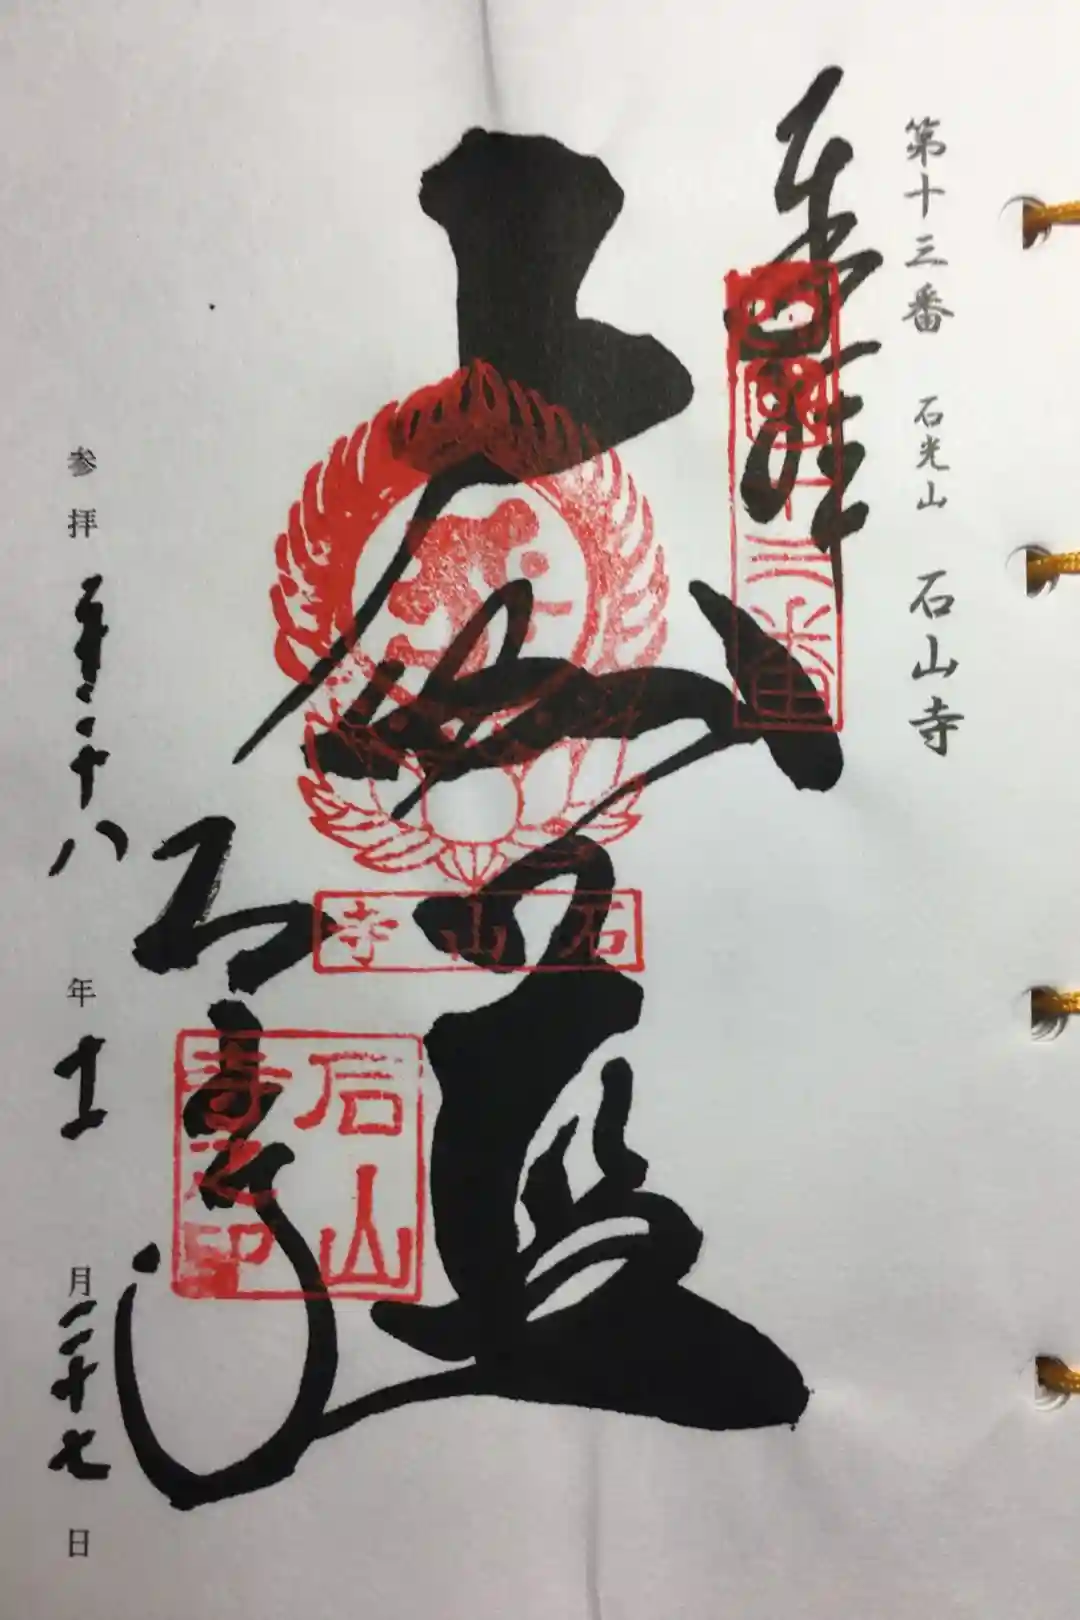 第十三番 石光山 石山寺
奉拝
西国十三番
大伽藍
石山寺
石山寺
石山寺之印
参拝 平成二十八年十一月二十七日